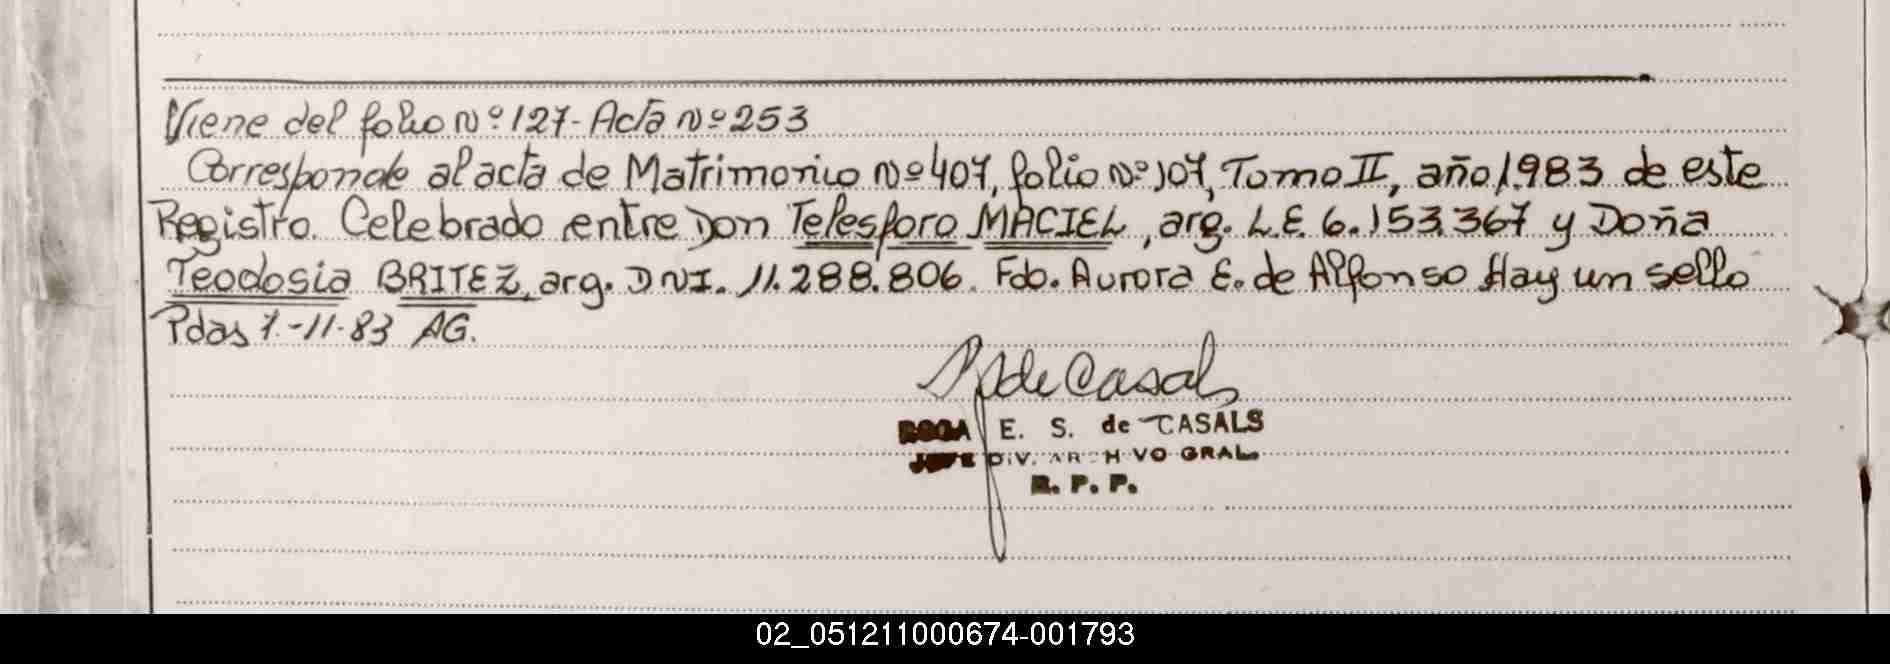 Viene del folio Nº 127- Acta Nº 253
Corresponde al acta de Matrimonio Nº 407, folio Nº 107, Tomo II, año 1.983 de este
Registro. Celebrado entre Don Telesforo MACIEL, arg. L.E. 6.153.367 y Doña
Teodosia BRITEZ, arg. DNI. 11.288.806. Fdo. Aurora E. de Alfonso Hay un sello
Pdas 7.-11-83 AG.
de Casals
ROSA E. S. de CASALS
JEFE DIV. ARCHIVO GRAL.
R. P. P.
02_051211000674-001793